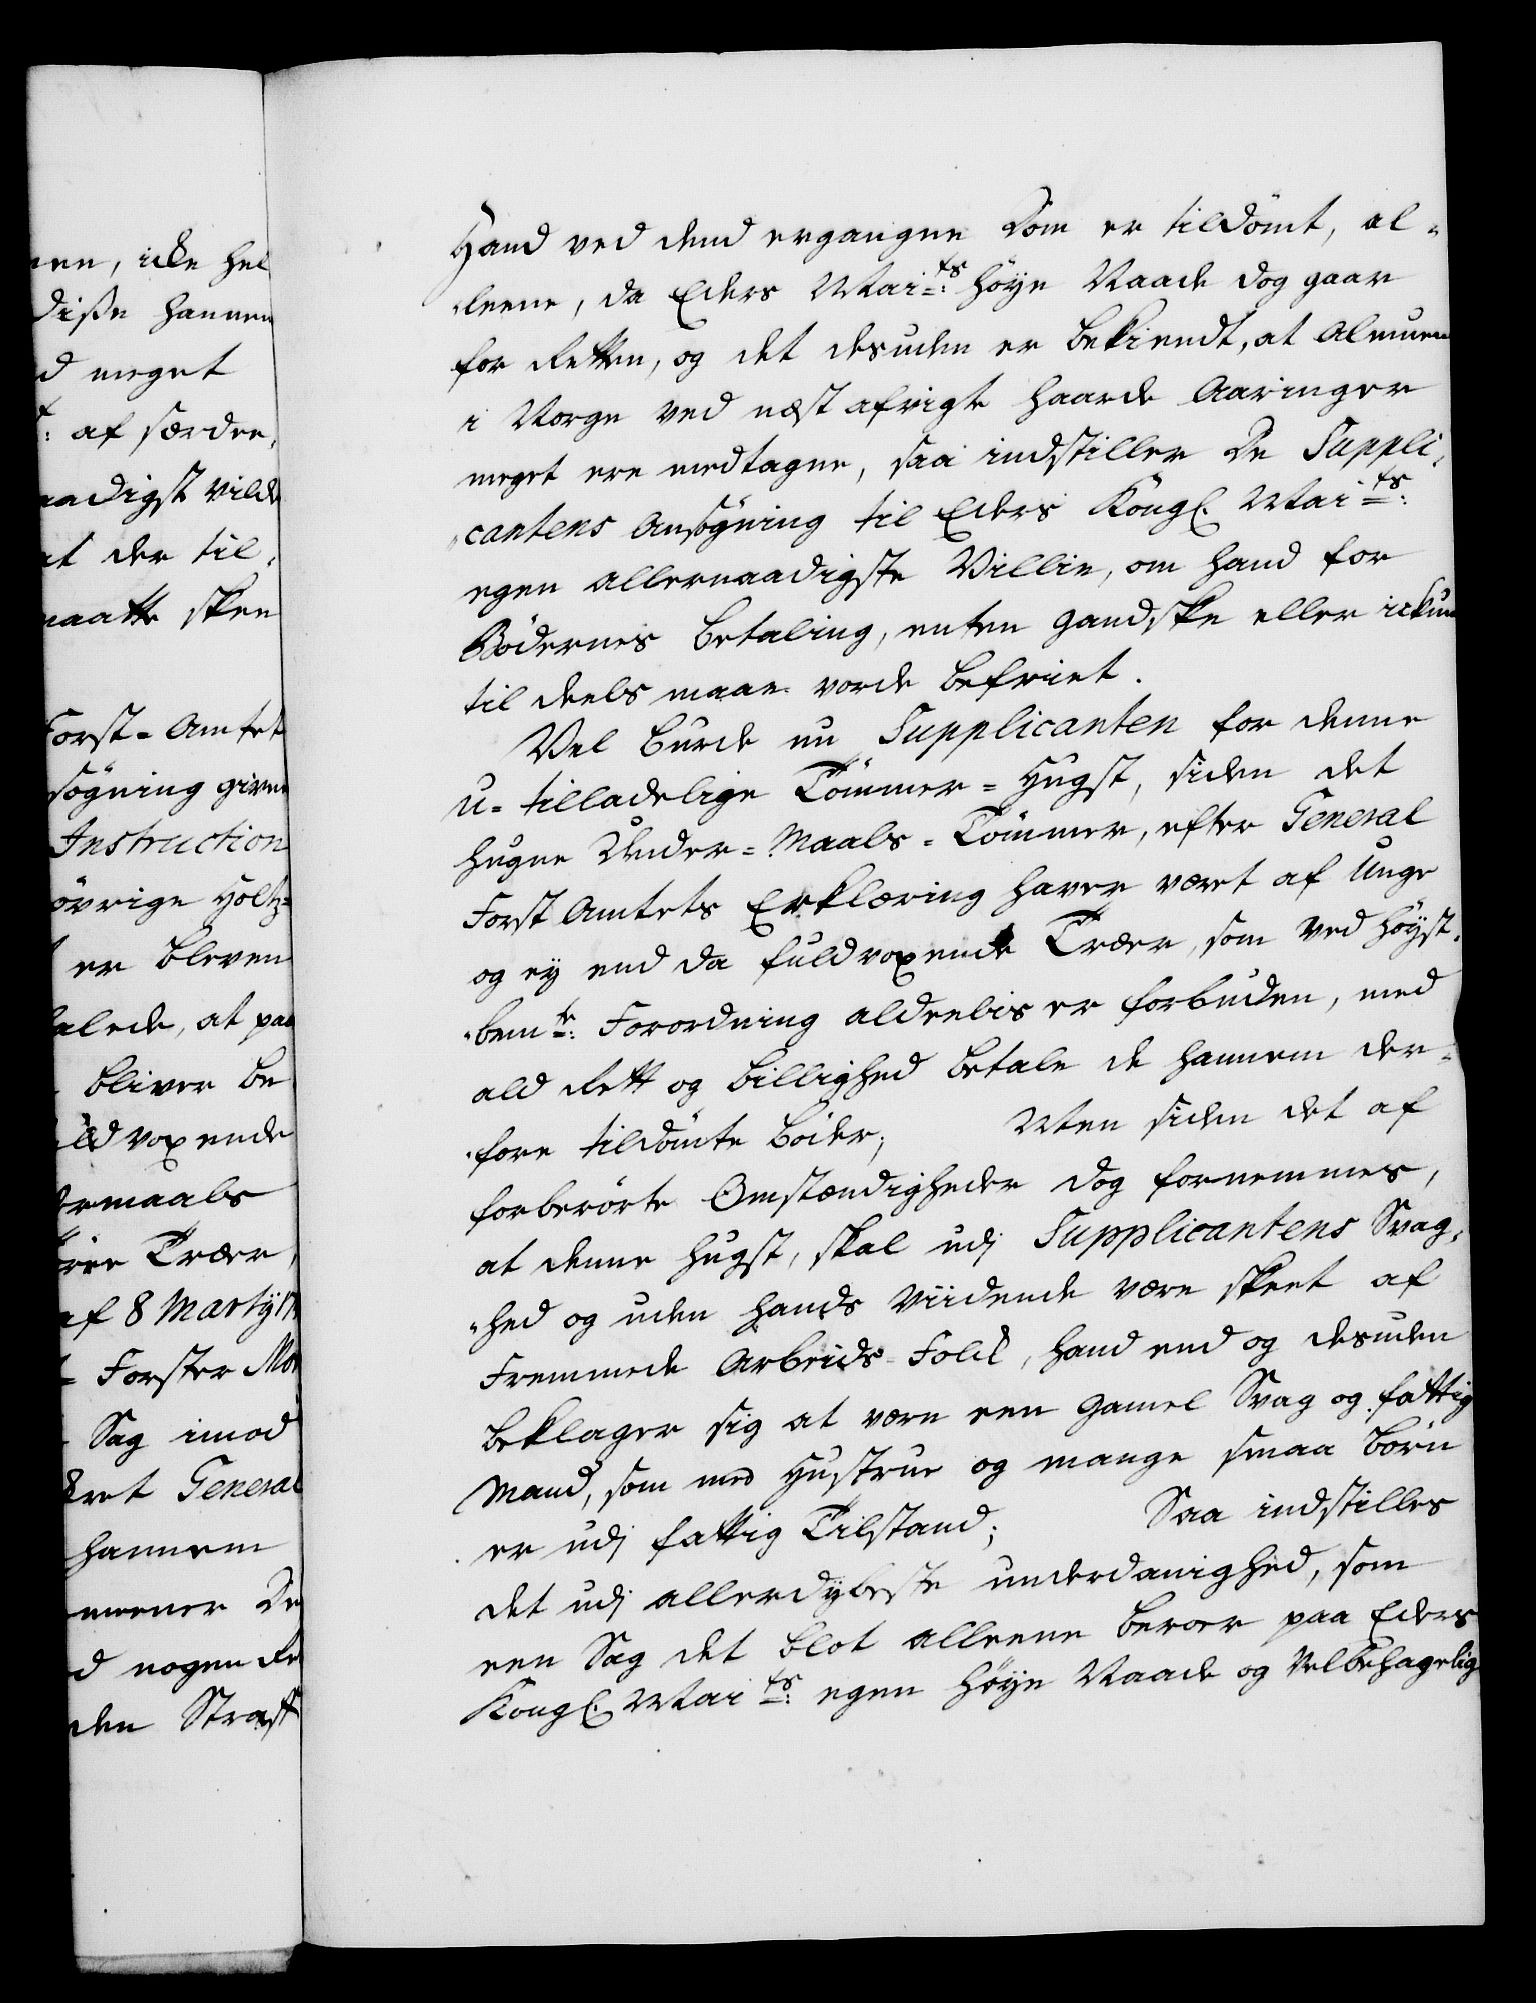 nen, icke hel
disse hannem
d meget
t: af særdee,
aadigst vilde
at der til,
maatte skee
Forst-Amtet
søgning given
Instruction
øvrige Holtz-
er bleven
alede, at paa
bliver be
uld voxende
dermaals
Træer,
af 8 Martij 17
Forster Mo
Sag imod
kret General
hannem
meener De
d nogen Re
den Straff
Hand ved dend ergangne Dom er tildömt, al-
leene, da Eders Maits: Høye Naade dog gaar
for Retten, og det desuden er bekiendt, at Almuen
i Norge ved næst afvigte haarde Aaringer
meget ere medtagne, saa indstiller De Suppli,
cantens Ansøgning til Eders Kongl. Maits:
egen allernaadigste Villie, om hand for
Bödernes Betaling, enten gandske eller ickun
til deels maae vorde befriet.
Vel burde nu Supplicanten for denne
u-tilladelige Tømmer-Hugst, siden det
hugne Under-Maals-Tømmer, efter General
Forst Amtets Erklæring haver været af unge
og ey end da fuldvoxende Træer, som ved høyst,
bemte: Forordning aldeelis er forbuden, med
ald Rett og billighed betale de hannem der-
fore tildömte Böder; Men siden det af
forberørte Omstændigheder dog fornemmes,
at denne Hugst, skal udj Supplicantens Svag,
hed og uden hands Viidende være skeet af
Fremmede Arbeids-Folck, hand end og desuden
beklager sig at være een Gamel Svag og fattig
Mand, som med Hustrue og mange smaa Børn
er udj fattig Tilstand; Saa indstilles
det udj allerdybeste underdanighed, som
een Sag det blot alleene beroer paa Eders
Kongl. Maits: egen Høye Naade og Velbehagelig